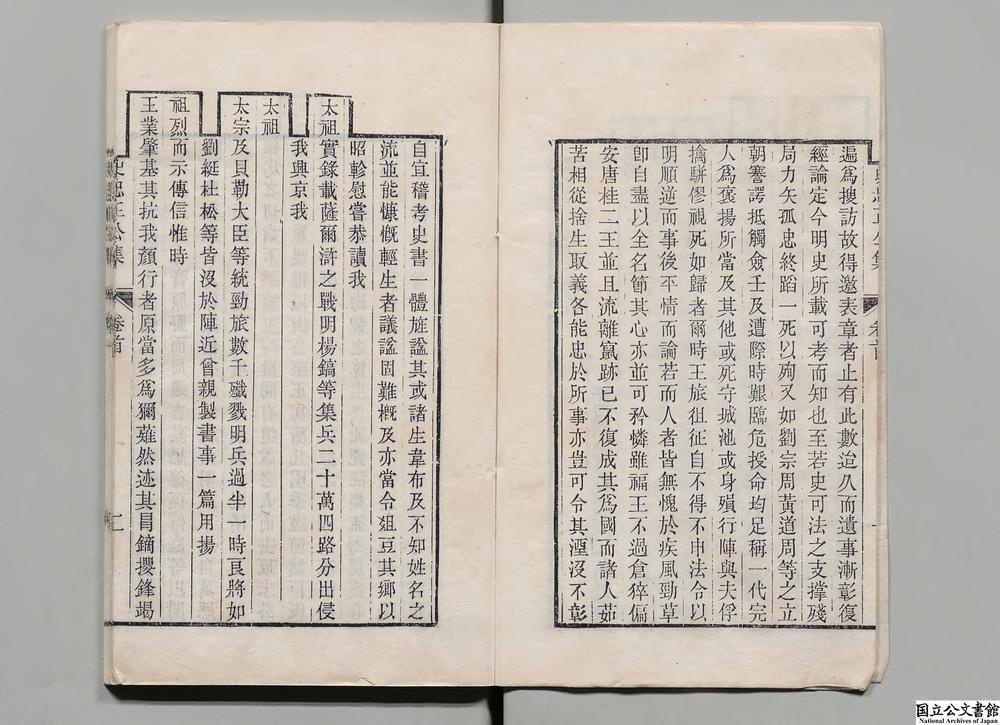 遍爲搜訪故得邀表章者止有此數迨久而遺事漸彰復
經論定今明史所載可考而知也至若史可法之支撐殘
局力矢孤忠終蹈一死以殉又如劉宗周黃道周等之立
朝謇諤抵觸僉壬及遭際時艱臨危授命均足稱一代完
人爲褒揚所當及其他或死守城池或身殞行陣與夫俘
擒騈僇視死如歸者爾時王旅徂征自不得不申法令以
明順逆而事後平情而論若而人者皆無愧於疾風勁草
卽自盡以全名節其心亦並可矜憐雖福王不過倉猝偏
安唐桂二王並且流離竄跡已不復成其爲國而諸人茹
苦相從捨生取義各能忠於所事亦豈可令其湮沒不彰
自宜稽考史書一體旌諡其或諸生韋布及不知姓名之
流並能慷慨輕生者議諡固難概及亦當令俎豆其鄉以
昭軫慰嘗恭讀我
太祖實錄載薩爾滸之戰明楊鎬等集兵二十萬四路分出侵
我興京我
太祖
太宗及貝勒大臣等統勁旅數千殲戮明兵過半一時良將如
劉綎杜松等皆沒於陣近曾親製書事一篇用揚
祖烈而示傳信惟時
王業肇基其抗我顏行者原當多爲獮薙然迹其冒鏑攖鋒竭
史忠正公集
卷首
二
国立公文書館
National Archives of Japan